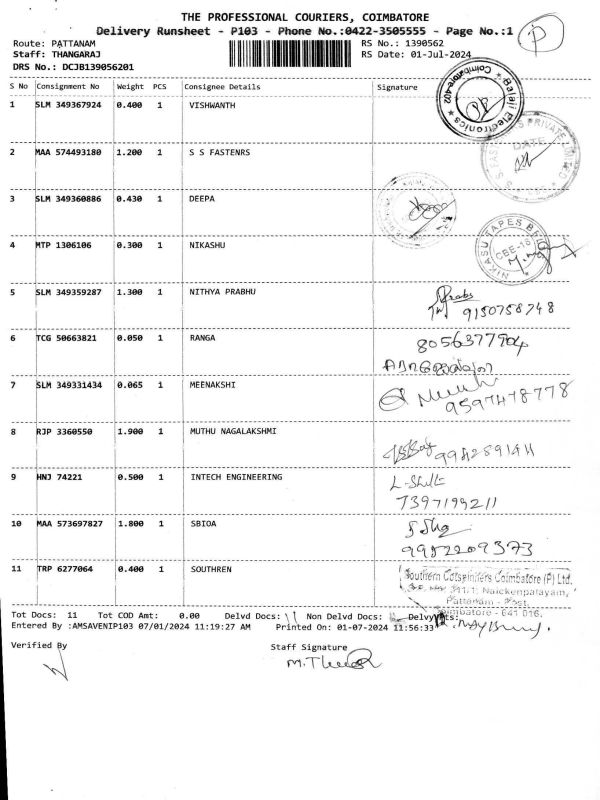 THE PROFESSIONAL COURIERS, COIMBATORE
Delivery Runsheet - P103 - Phone No.:0422-3505555 - Page No.:1
P
Route: PATTANAM
RS No.: 1390562
Staff: THANGARAJ
RS Date: 01-Jul-2024
DRS No.: DCJB139056201
S No Consignment No Weight PCS Consignee Details Signature
1 SLM 349367924 0.400 1 VISHWANTH
Balaji Electronics * Coimbatore-402 *
2 MAA 574493180 1.200 1 S S FASTENRS
DATE
3 SLM 349360886 0.430 1 DEEPA
4 MTP 1306106 0.300 1 NIKASHU
NIKASU TAPES
CBE-16
5 SLM 349359287 1.300 1 NITHYA PRABHU
9150758748
6 TCG 50663821 0.050 1 RANGA
8056377904
7 SLM 349331434 0.065 1 MEENAKSHI
9597478778
8 RJP 3360550 1.900 1 MUTHU NAGALAKSHMI
9 HNJ 74221 0.500 1 INTECH ENGINEERING
7397199211
10 MAA 573697827 1.800 1 SBIOA
9952209373
11 TRP 6277064 0.400 1 SOUTHREN
Southern Cotspinners Coimbatore (P) Ltd.
Naickenpalayam,
Pattanam - Post,
Coimbatore - 641 016.
Tot Docs: 11 Tot COD Amt: 0.00 Delvd Docs: 11 Non Delvd Docs:
Entered By :AMSAVENIP103 07/01/2024 11:19:27 AM Printed On: 01-07-2024 11:56:33
Verified By
Staff Signature